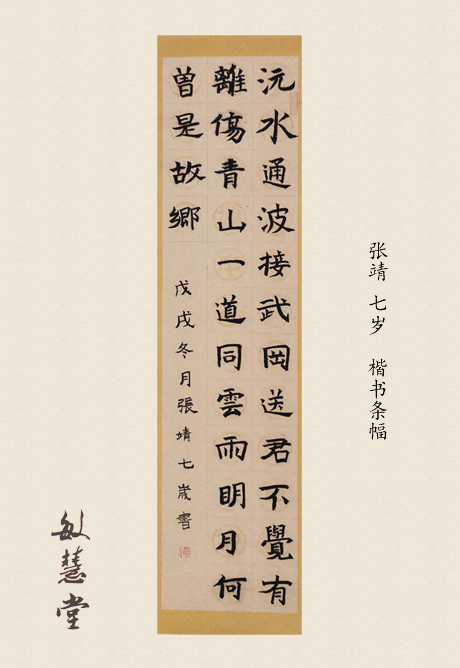 沅水通波接武岡送君不覺有
離傷青山一道同雲雨明月何
曾是故鄉
戊戌冬月張靖七歲書
张靖 七岁 楷书条幅
敏慧堂